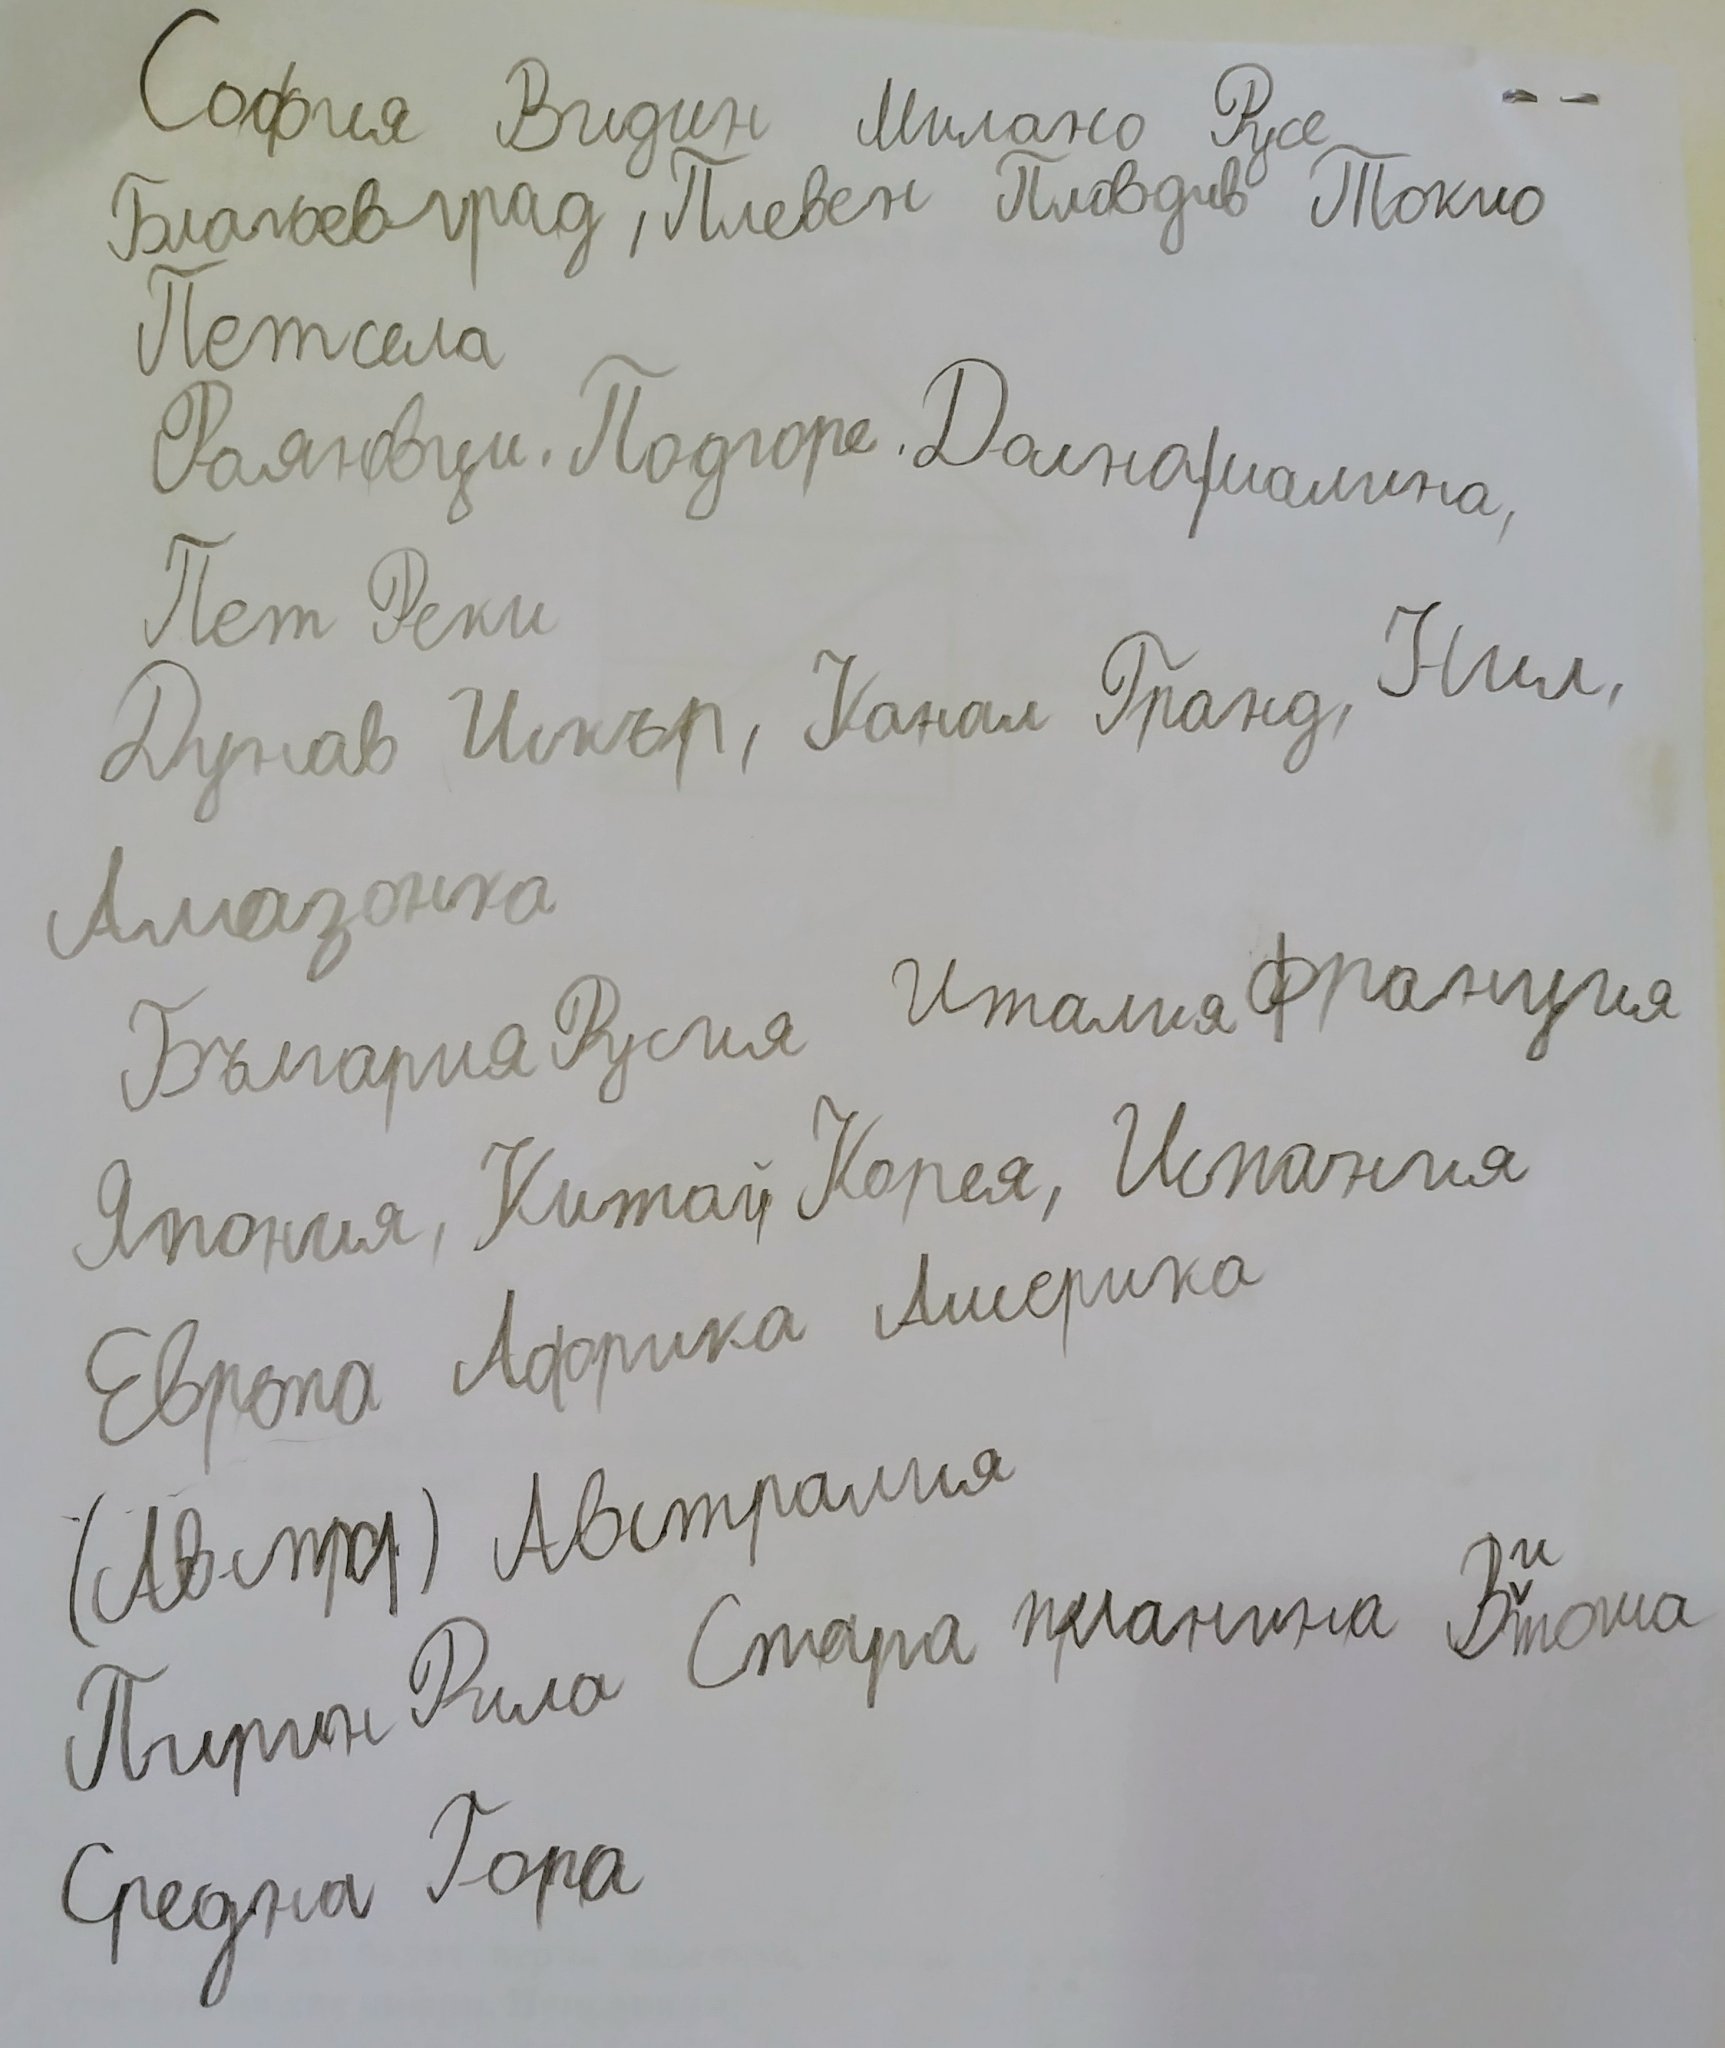 София Видин Милано Русе
Благоевград, Плевен Пловдив Токио
Петсела
Раяновци. Подгоре. Долна
Пет Реки
Дунав Искър, Канал Гранд, Нил,
Амазонка
България Русия Италия Франция
Япония, Китай, Корея, Испания
Европа Африка Америка
(Австра) Австралия
Пирин Рила Стара планина Витоша
Средна Гора